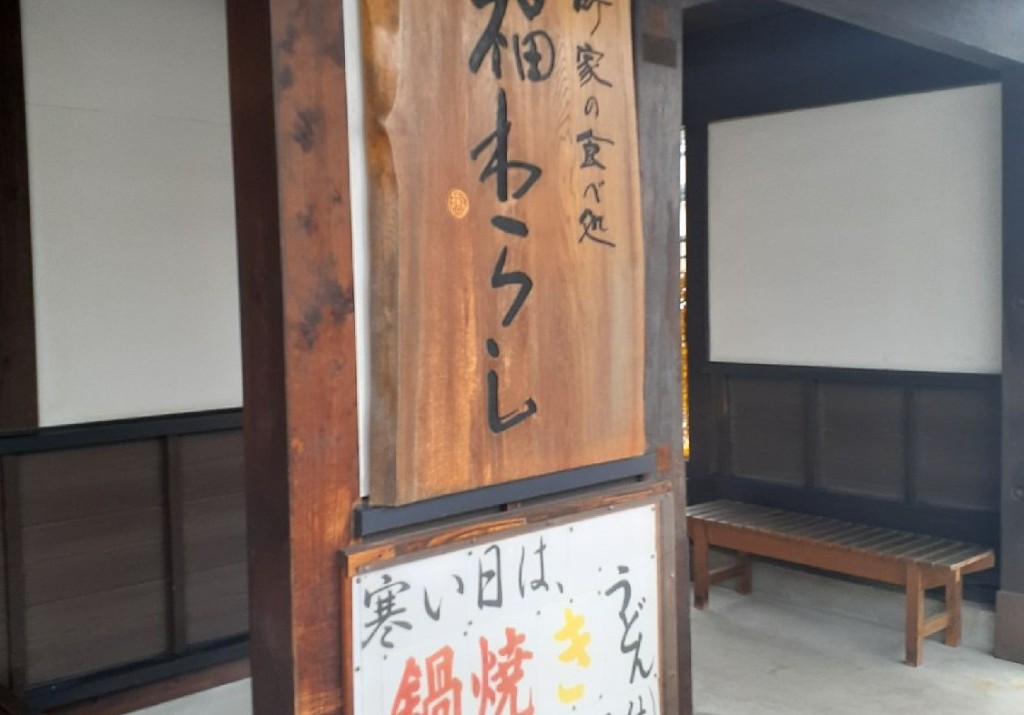 家の食べ処
福わらし
寒い日は、
鍋焼き
うどん